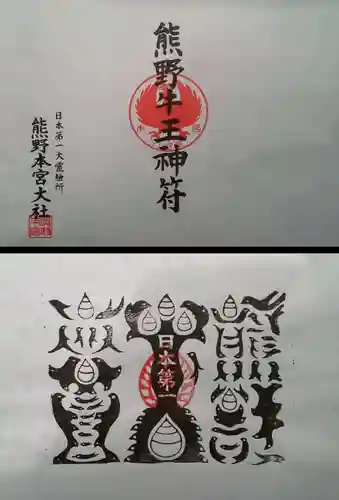 熊野牛王神符
日本第一大霊験所
熊野本宮大社
日本第一